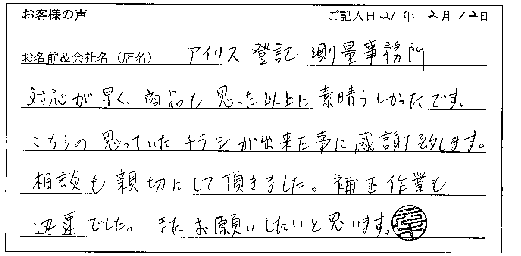 お客様の声 ご記入日 21年 2月 12日
お名前&会社名(店名) アイリス登記測量事務所
対応が早く、商品も思った以上に素晴らしかったです。
こちらの思っていたチラシが出来た事に感謝致します。
相談も親切にして頂きました。補正作業も
迅速でした。またお願いしたいと思います。